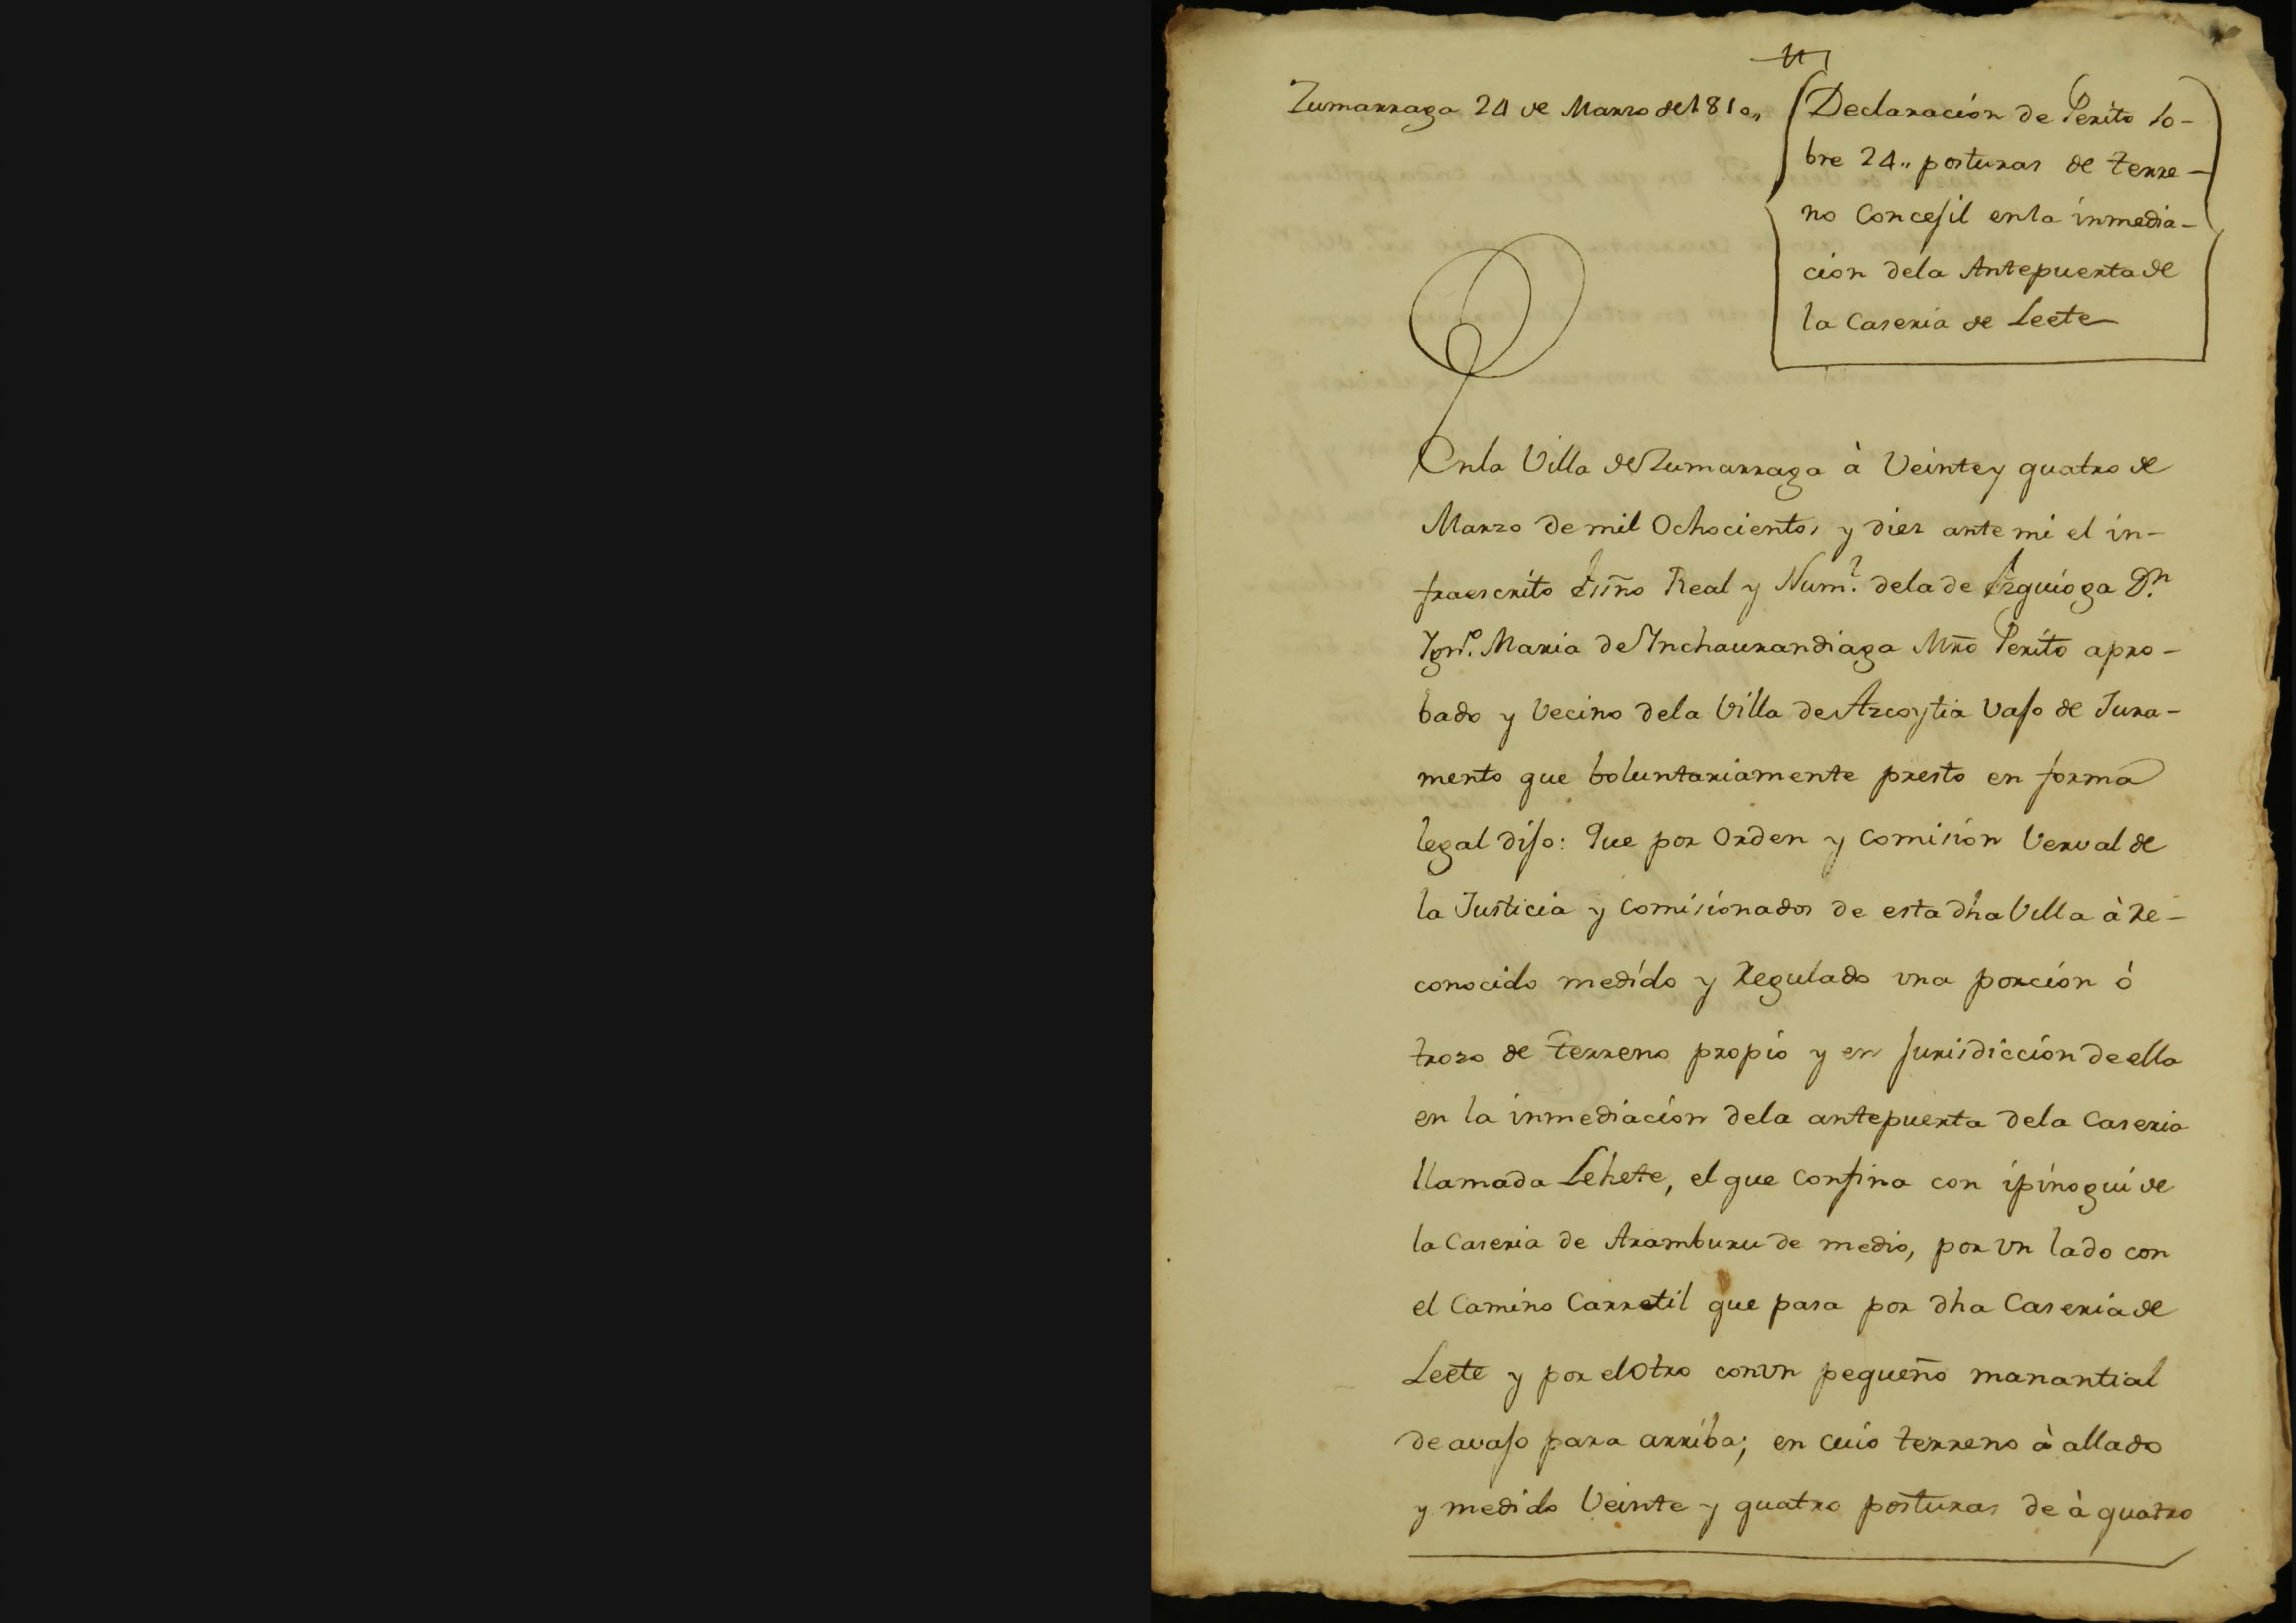 Zumarraga 24 de Marzo de 1810,,
Declaración de Perito so-
bre 24,, posturas de terre-
no Concejil enla inmedia-
ción dela Antepuerta de
la Caseria de Leete
Enla Villa de Zumarraga à Veinte y quatro de
Marzo de mil Ochocientos y diez ante mi el in-
fraescrito Essño Real y Num.l dela de Ezquioga D.n
Ign.o Maria de Inchaurandiaga Mrõ Perito apro-
bado y Vecino dela Villa de Azcoytia vajo de Jura-
mento que boluntariamente presto en forma
legal dijo: Que por Orden y Comisión Verval de
la Justicia y Comisionados de esta dha Villa à re-
conocido medido y Regulado vna porción ò
trozo de terreno propio y en Jurisdicción de ella
en la inmediación dela antepuerta dela Caseria
llamada Lehete, el que confina con ipinogui de
la Caseria de Aramburu de medio, por vn lado con
el Camino Carretil que pasa por dha Caseria de
Leete y por el Otro con vn pequeño manantial
de avajo para arriba; en cuio terreno à allado
y medido Veinte y quatro posturas de à quatro